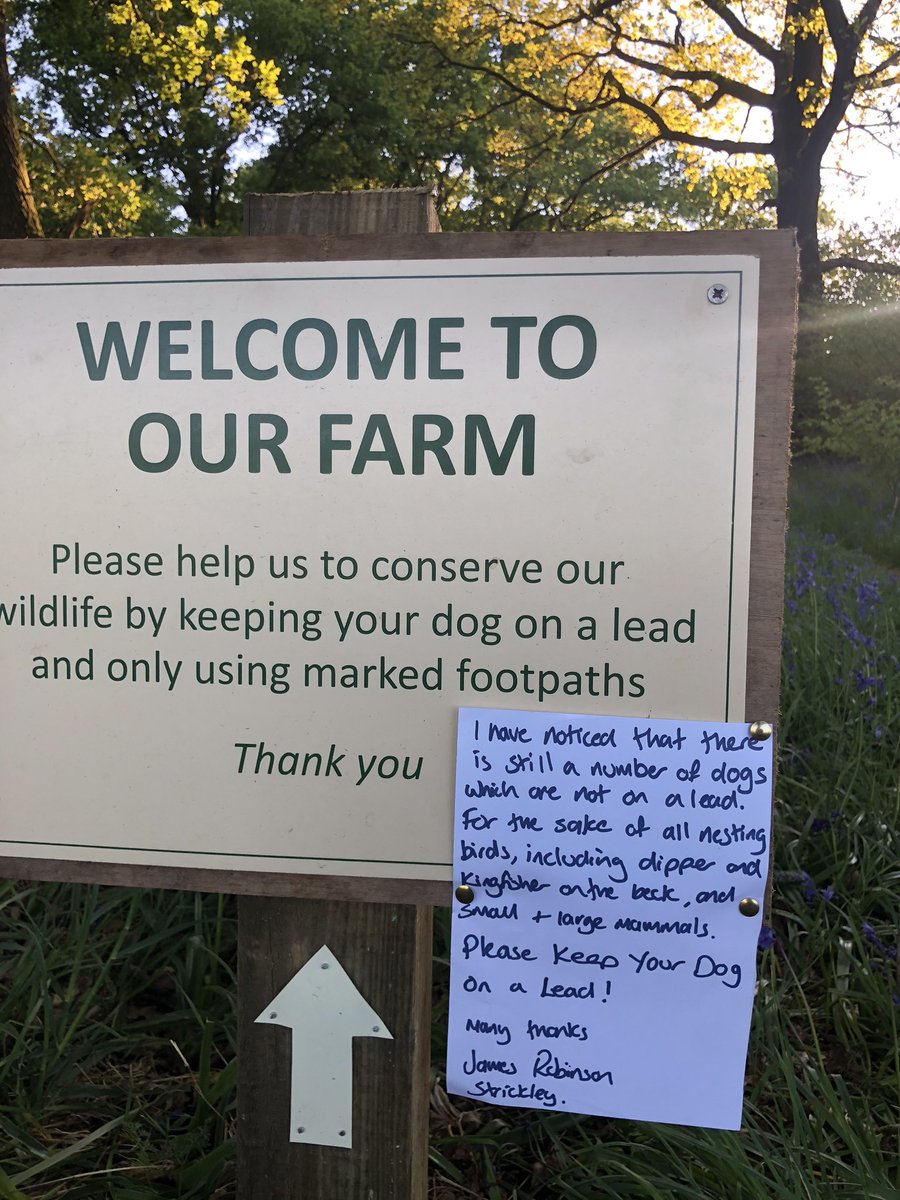 WELCOME TO
OUR FARM
Please help us to conserve our
wildlife by keeping your dog on a lead
and only using marked footpaths
Thank you
I have noticed that there
is still a number of dogs
which are not on a lead.
For the sake of all nesting
birds, including dipper and
Kingfisher on the beck, and
small + large mammals.
Please Keep Your Dog
on a Lead!
Many thanks
James Robinson
Strickley.